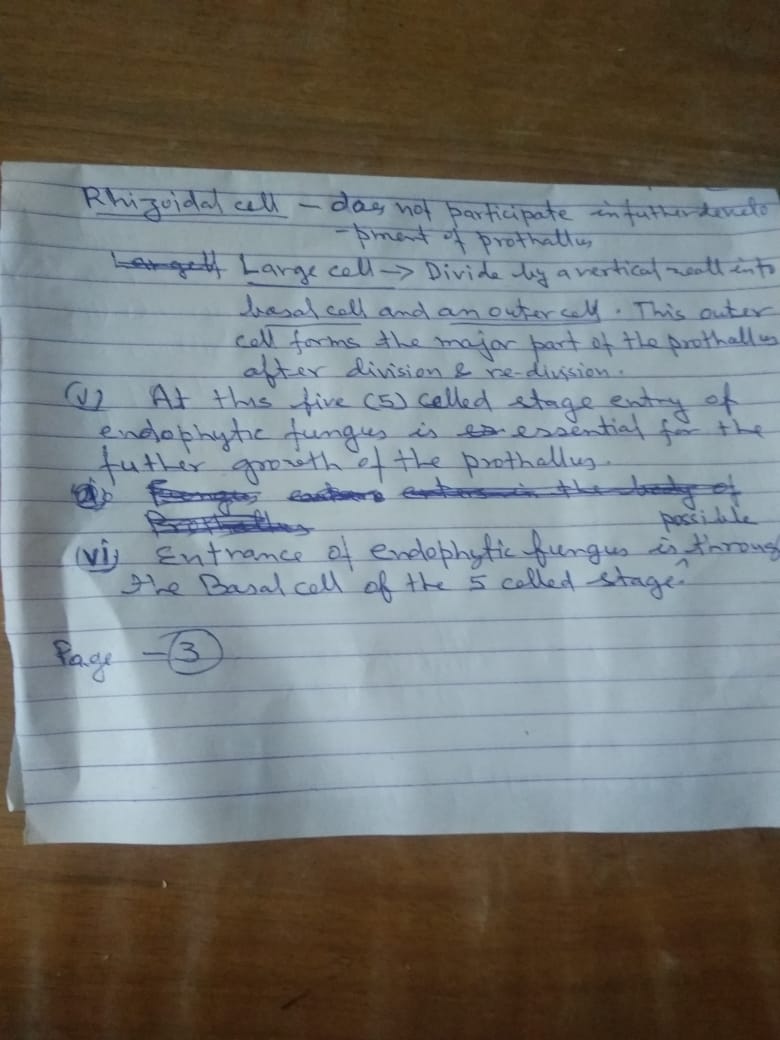 Rhizoidal cell - does not participate in futher develo
-pment of prothallus
Large cell -> Divide by a vertical wall into
basal cell and an outer cell. This outer
cell forms the major part of the prothallus
after division & re-division.
(v) At this five (5) celled stage entry of
endophytic fungus is essential for the
futher growth of the prothallus.
possible
(vi) Entrance of endophytic fungus is ^ throug
the Basal cell of the 5 celled stage.
Page - 3